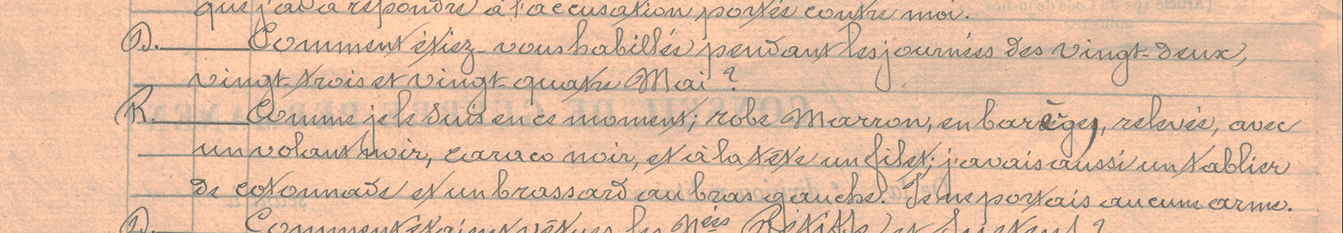 que j'ai à répondre à l'accusation portée contre moi.
D. Comment étiez-vous habillée pendant les journées des vingt-deux,
vingt-trois et vingt-quatre Mai ?
R. Comme je le suis en ce moment; robe Marron, en barège, relevée, avec
un volant noir, caraco noir, et à la tête un filet; j'avais aussi un tablier
de cotonnade et un brassard au bras gauche. Je ne portais aucune arme.
D. Comment étaient vêtues les nées Rétiffe et Suétens ?